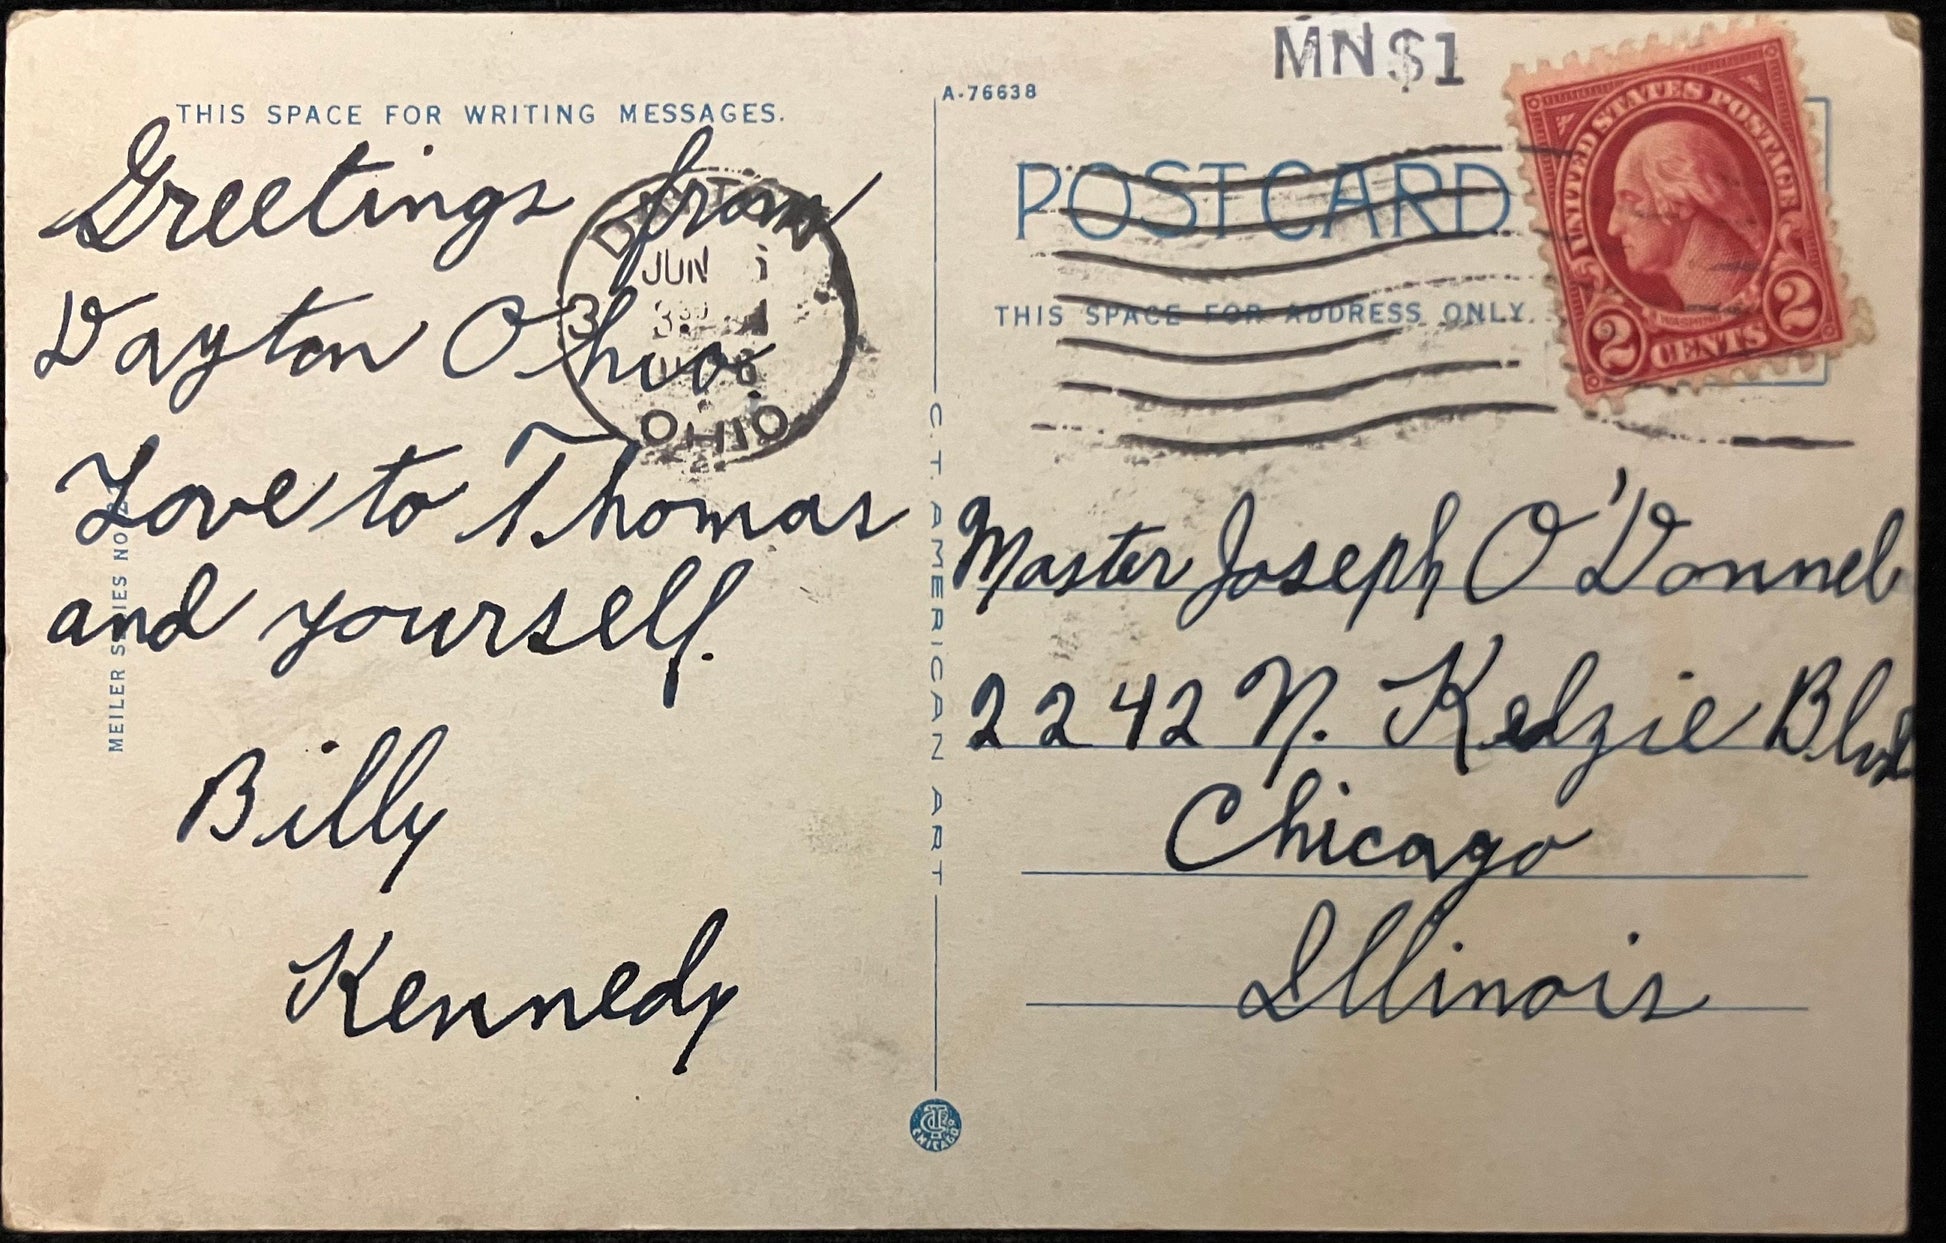 THIS SPACE FOR WRITING MESSAGES.
Greetings from
Dayton Ohio
Love to Thomas
and yourself.
Billy
Kennedy
MEILER SERIES NO.
DAYTON
JUN
3
OHIO
C. T. AMERICAN ART
CHICAGO
A-76638
MN$1
POST CARD
THIS SPACE FOR ADDRESS ONLY.
UNITED STATES POSTAGE
2 CENTS 2
Master Joseph O'Donnel
2242 N. Kedzie Blvd
Chicago
Illinois